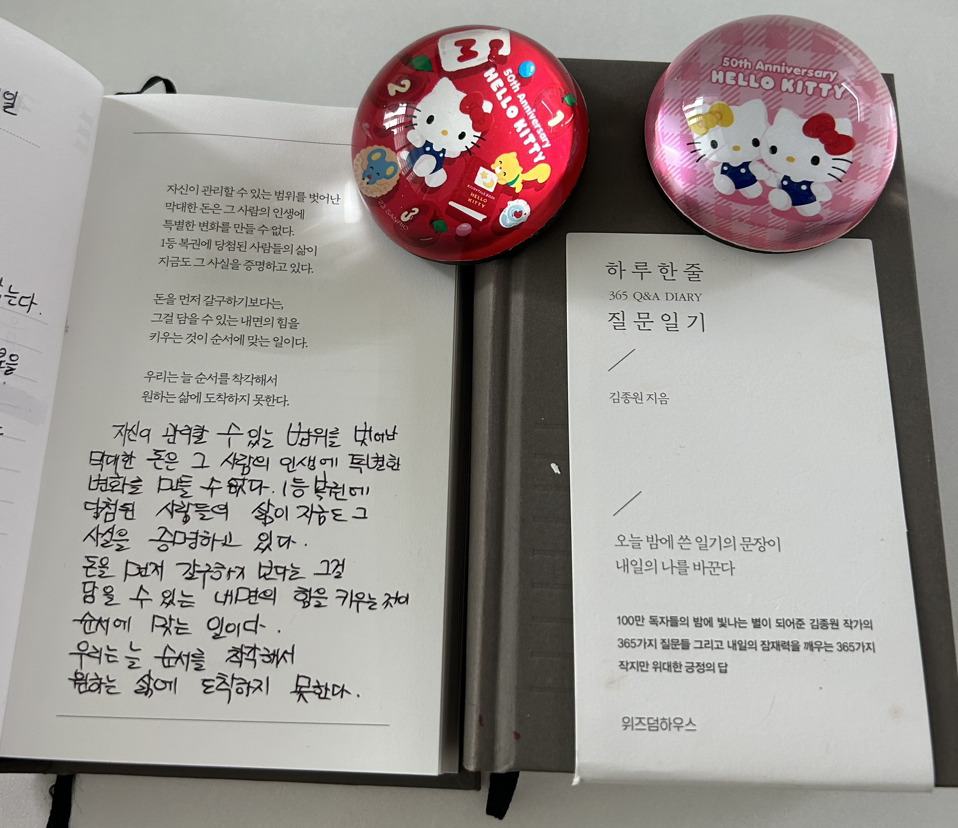 일
는다.
을
자신이 관리할 수 있는 범위를 벗어난
막대한 돈은 그 사람의 인생에
특별한 변화를 만들 수 없다.
1등 복권에 당첨된 사람들의 삶이
지금도 그 사실을 증명하고 있다.
돈을 먼저 갈구하기보다는,
그걸 담을 수 있는 내면의 힘을
키우는 것이 순서에 맞는 일이다.
우리는 늘 순서를 착각해서
원하는 삶에 도착하지 못한다.
자신이 관리할 수 있는 범위를 벗어난
막대한 돈은 그 사람의 인생에 특별한
변화를 만들 수 없다. 1등 복권에
당첨된 사람들의 삶이 지금도 그
사실을 증명하고 있다.
돈을 먼저 갈구하기 보다는 그걸
담을 수 있는 내면의 힘을 키우는 것이
순서에 맞는 일이다.
우리는 늘 순서를 착각해서
원하는 삶에 도착하지 못한다.
2
1
3
50th Anniversary
HELLO KITTY
HELLO
KITTY
50th Anniversary
HELLO KITTY
하루한줄
365 Q&A DIARY
질문일기
김종원 지음
오늘 밤에 쓴 일기의 문장이
내일의 나를 바꾼다
100만 독자들의 밤에 빛나는 별이 되어준 김종원 작가의
365가지 질문들 그리고 내일의 잠재력을 깨우는 365가지
작지만 위대한 긍정의 답
위즈덤하우스